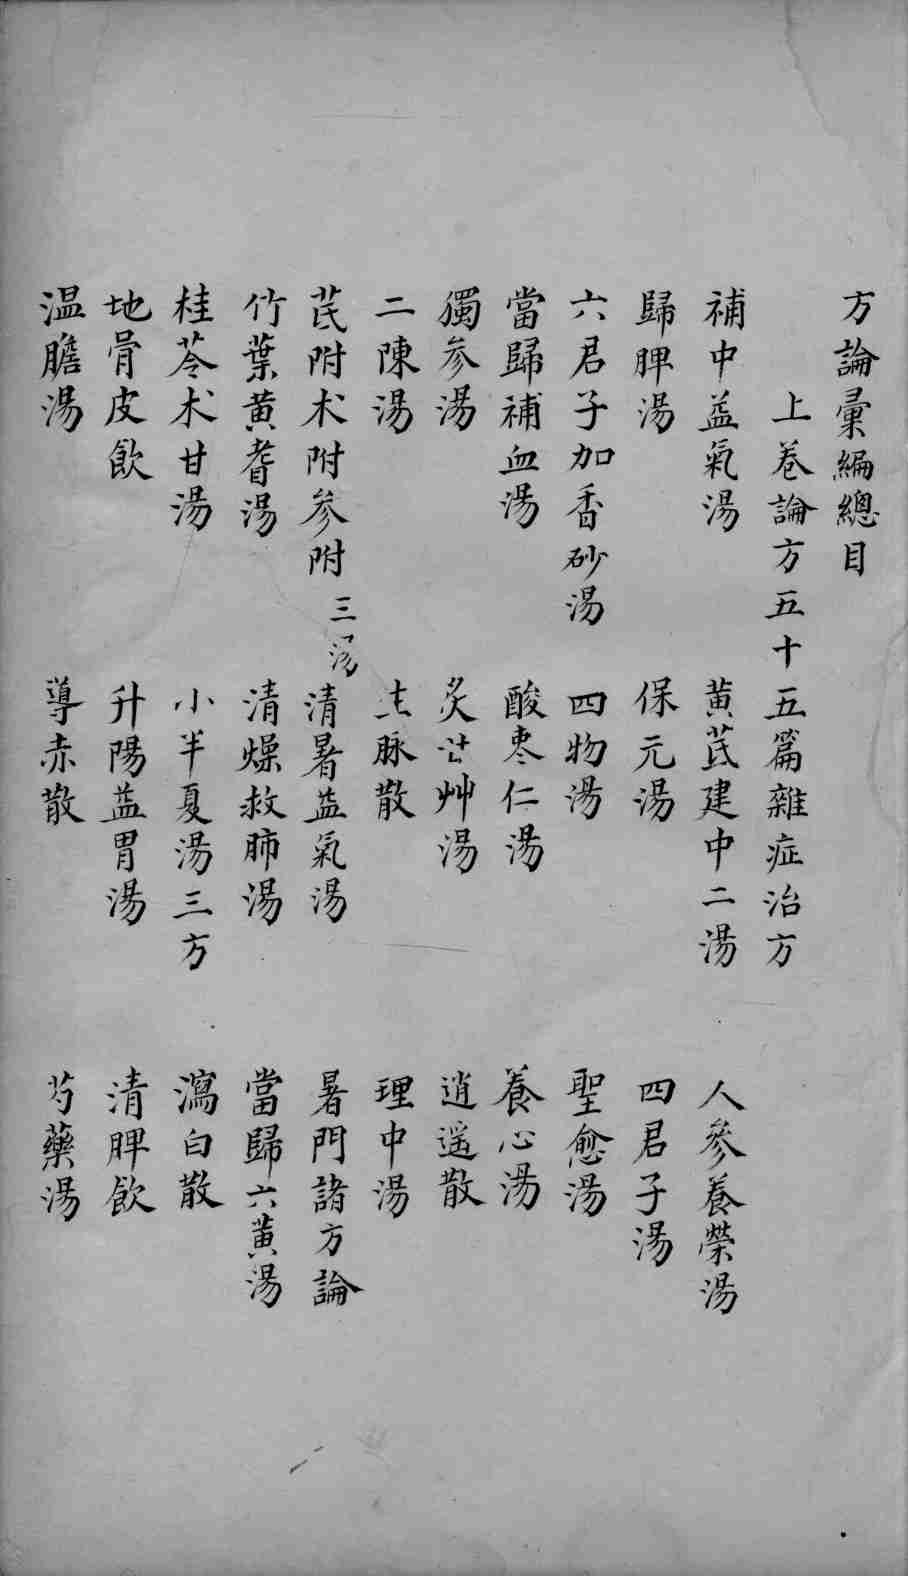 方論彙編總目
上卷論方五十五篇雜症治方
補中益氣湯 黃芪建中二湯 人參養榮湯
歸脾湯 保元湯 四君子湯
六君子加香砂湯 四物湯 聖愈湯
當歸補血湯 酸棗仁湯 養心湯
獨參湯 炙甘艸湯 逍遥散
二陳湯 生脉散 理中湯
芪附术附參附三湯 清暑益氣湯 暑門諸方論
竹葉黄耆湯 清燥救肺湯 當歸六黄湯
桂苓术甘湯 小半夏湯三方 瀉白散
地骨皮飲 升陽益胃湯 清脾飲
温膽湯 導赤散 芍藥湯